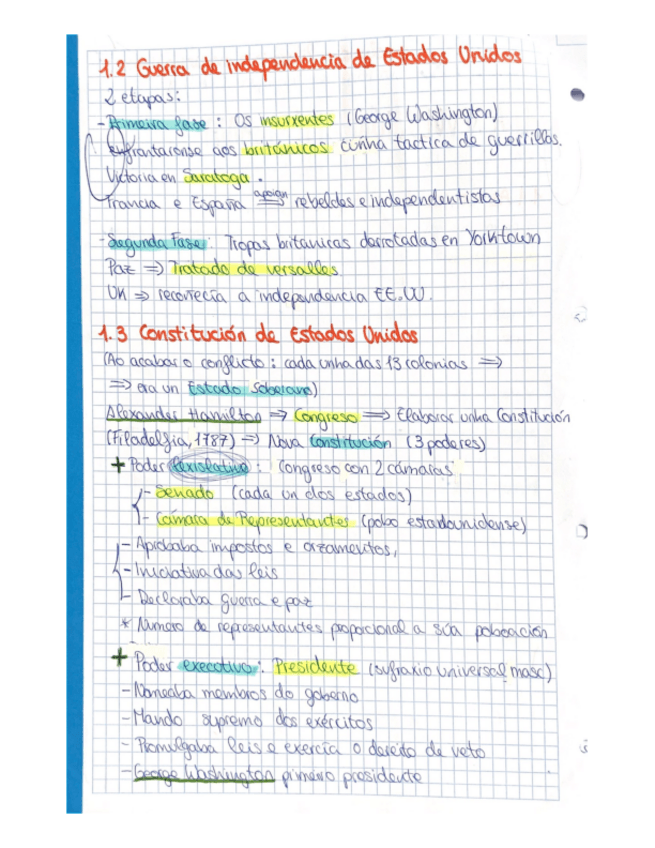 1.2 Guerra de independencia de Estados Unidos
2 etapas:
- Primeira fase: Os insurxentes (George Washington)
enfrontaronse aos británicos cunha tactica de guerrillas.
Victoria en Saratoga.
Francia e España apoian rebeldes e independentistas
- Segunda Fase: Tropas britanicas derrotadas en Yorktown
Paz => Tratado de Versalles
UK => recoñecía a independencia EE.UU.
1.3 Constitución de Estados Unidos
(Ao acabar o conflicto: cada unha das 13 colonias =>
=> era un Estado Soberano)
Alexander Hamilton => Congreso => Elaborar unha Constitución
(Filadelfia, 1787) => Nova Constitución (3 poderes)
+ Poder lexislativo: Congreso con 2 cámaras
- Senado (cada un dos estados)
- Cámara de Representantes (pobo estadounidense)
- Aprobaba impostos e orzamentos,
- Iniciativa das leis
- Declaraba guerra e paz
* Número de representantes proporcional a súa poboación
+ Poder executivo: Presidente (sufraxio universal masc)
- Nomeaba membros do goberno
- Mando supremo dos exércitos
- Promulgaba leis e exercía o dereito de veto
- George Washington primeiro presidente